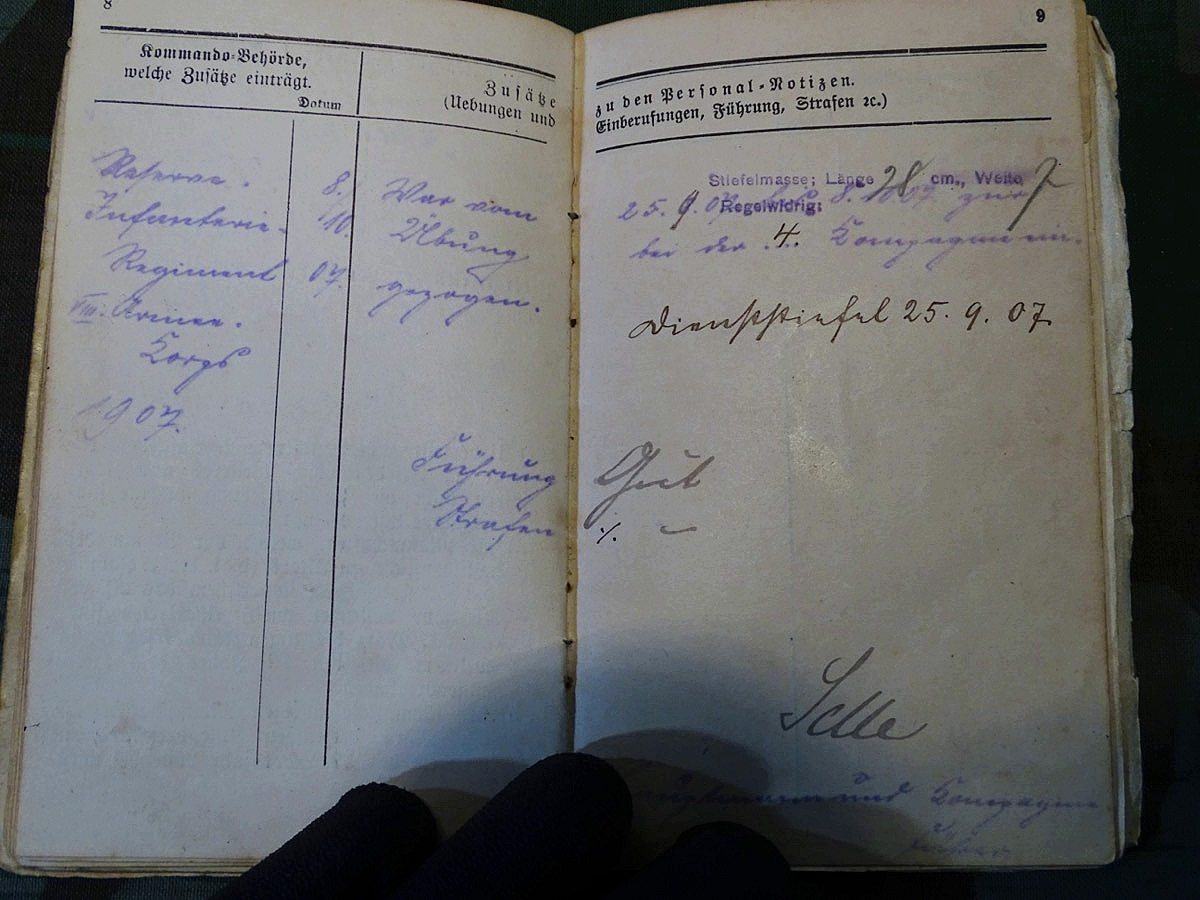 8
Kommando-Behörde,
welche Zusätze einträgt.
Datum
Zusätze
(Uebungen und
Reserve.
Infanterie-
Regiment
VIII. Armee.
Korps
1907.
8.
10.
07.
War vom
Übung
gezogen.
Führung
Strafen
9
zu den Personal-Notizen.
Einberufungen, Führung, Strafen ꝛc.)
Stiefelmasse; Länge 28 cm., Weite 7
25. 9. 07 8. 10 07. zur
Regelwidrig:
bei der 4. Kompagnie ein.
Dienststiefel 25. 9. 07
Gut
./. –
Selle
Hauptmann und Kompagnie
führer